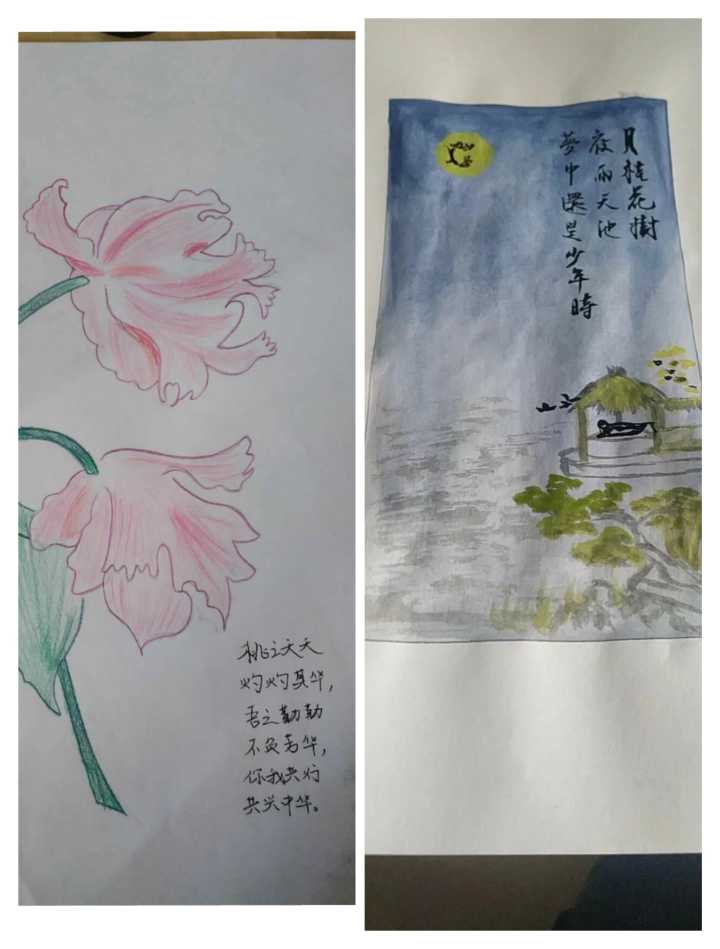 桃之夭夭
灼灼其华，
吾之勤勤
不负芳华，
你我共行
共兴中华。
月桂花樹
夜雨天池
夢中還是少年時